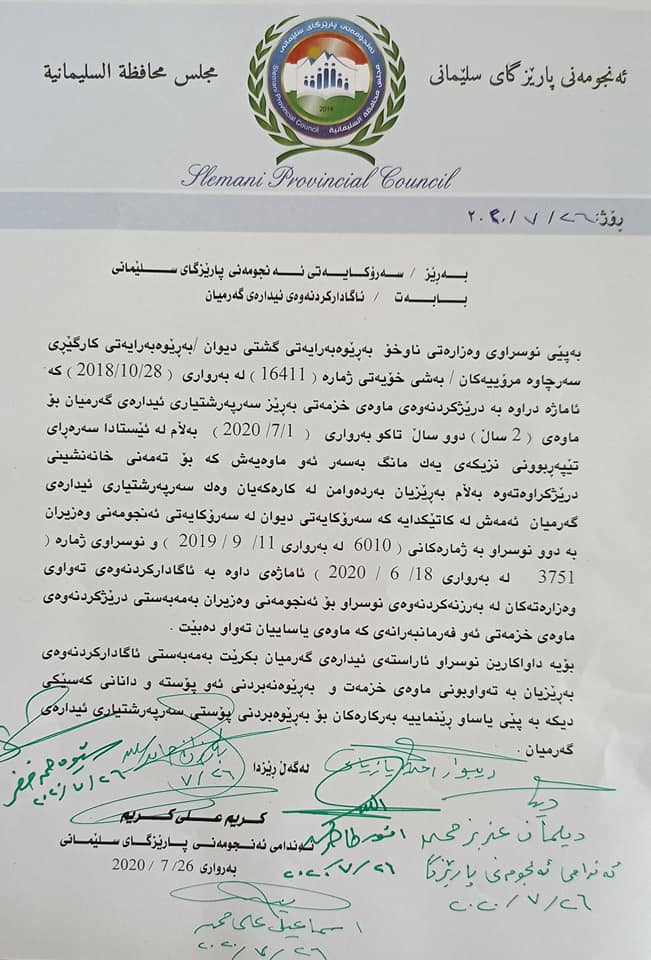 ئەنجومەنی پارێزگای سلێمانی
مجلس محافظة السليمانية
ئەنجومەنی پارێزگای سلێمانی
مجلس محافظة السليمانية
Slemani Provincial Council
2014
Slemani Provincial Council
ڕۆژ: ٢٠٢٠/٧/٢٦
بەڕێز / سەرۆکایەتی ئەنجومەنی پارێزگای سلێمانی
بابەت / ئاگادارکردنەوەی ئیدارەی گەرمیان
بەپێی نوسراوی وەزارەتی ناوخۆ بەڕێوەبەرایەتی گشتی دیوان /بەڕێوەبەرایەتی کارگێڕی
سەرچاوە مرۆییەکان / بەشی خۆیەتی ژمارە ( 16411) لە بەرواری (2018/10/28) کە
ئاماژە دراوە بە درێژکردنەوەی ماوەی خزمەتی بەڕێز سەرپەرشتیاری ئیدارەی گەرمیان بۆ
ماوەی ( 2 ساڵ) دوو ساڵ تاکو بەرواری ( 2020 /7/1) بەڵام لە ئێستادا سەرەڕای
تێپەڕبوونی نزیکەی یەك مانگ بەسەر ئەو ماوەیەش کە بۆ تەمەنی خانەنشینی
درێژکراوەتەوە بەڵام بەڕێزیان بەردەوامن لە کارەکەیان وەك سەرپەرشتیاری ئیدارەی
گەرمیان ئەمەش لە کاتێکدایە کە سەرۆکایەتی دیوان لە سەرۆکایەتی ئەنجومەنی وەزیران
بە دوو نوسراو بە ژمارەکانی ( 6010 لە بەرواری 11/ 9 / 2019 ) و نوسراوی ژمارە (
3751 لە بەرواری 18/ 6 / 2020 ) ئاماژەی داوە بە ئاگادارکردنەوەی تەواوی
وەزارەتەکان لە بەرزنەکردنەوەی نوسراو بۆ ئەنجومەنی وەزیران بەمەبەستی درێژکردنەوەی
ماوەی خزمەتی ئەو فەرمانبەرانەی کە ماوەی یاساییان تەواو دەبێت .
بۆیە داواکارین نوسراو ئاراستەی ئیدارەی گەرمیان بکرێت بەمەبەستی ئاگادارکردنەوەی
بەڕێزیان بە تەواوبونی ماوەی خزمەت و بەڕێوەنەبردنی ئەو پۆستە و دانانی کەسێکی
دیکە بە پێی یاساو ڕێنماییە بەرکارەکان بۆ بەڕێوەبردنی پۆستی سەرپەرشتیاری ئیدارەی
گەرمیان .
لەگەڵ ڕێزدا
٧/٢٦
٢٠٢٠/٧/٢٦
کریم علی کریم
ئەندامی ئەنجومەنی پارێزگای سلێمانی
بەرواری 26/7 / 2020
٢٠٢٠/٧/٢٦
دیلمان عزیز محمد
ئەندامی ئەنجومەنی پارێزگا
٢٠٢٠/٧/٢٦
اسماعیل علی محمد
٢٠٢٠/٧/٢٦